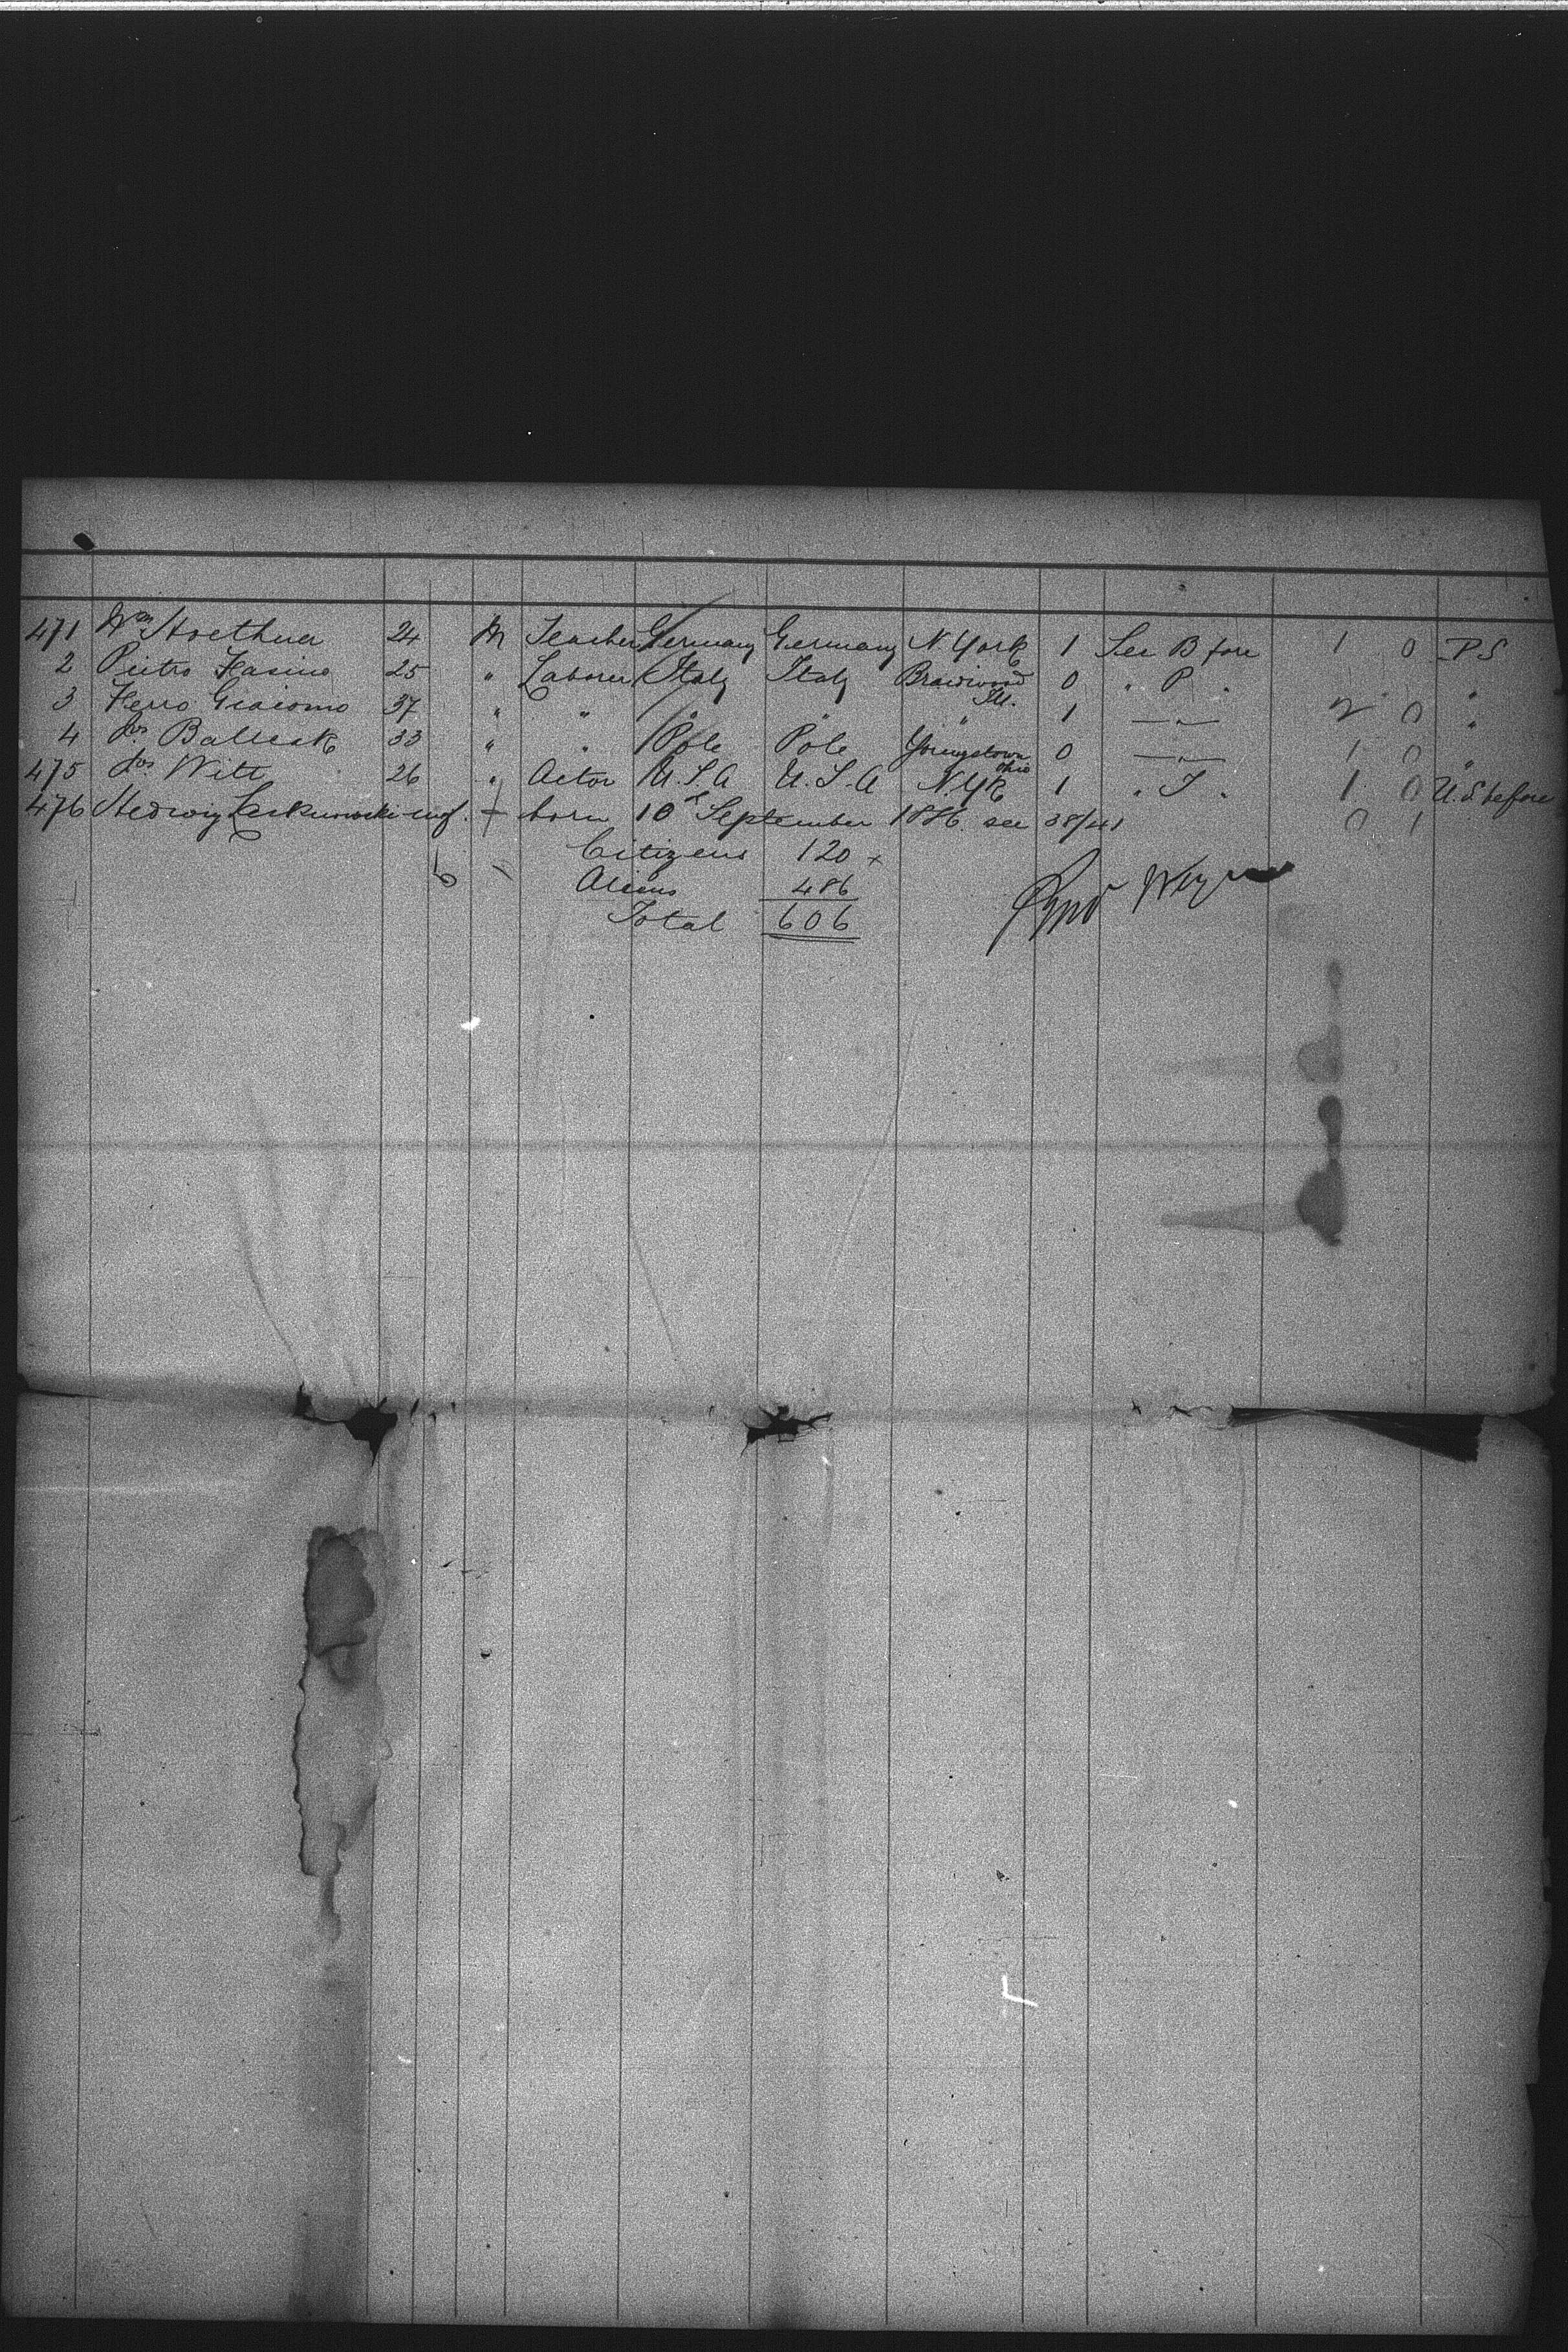 471 Wm Hoethner 24 M Teacher Germany Germany N. York 1 See B fore 1 0 P S
2 Pietro Fasino 25 " Laborer Italy Italy Braidwood Ill. 0 " P "
3 Ferro Giacomo 37 " " " " " 1 — " — 2 0 "
4 Jos. 33 " " Pole Pole Youngstown Ohio 0 — " — 1 0 "
475 Jos. Witt 26 " Actor U.S.A U.S.A N.Yk 1 " I " 1 0 U.S before
476 Hedwig inf. + born 10th September 1886 see 38/41 0 1
Citizens 120 x
6 Aliens 486
Total 606